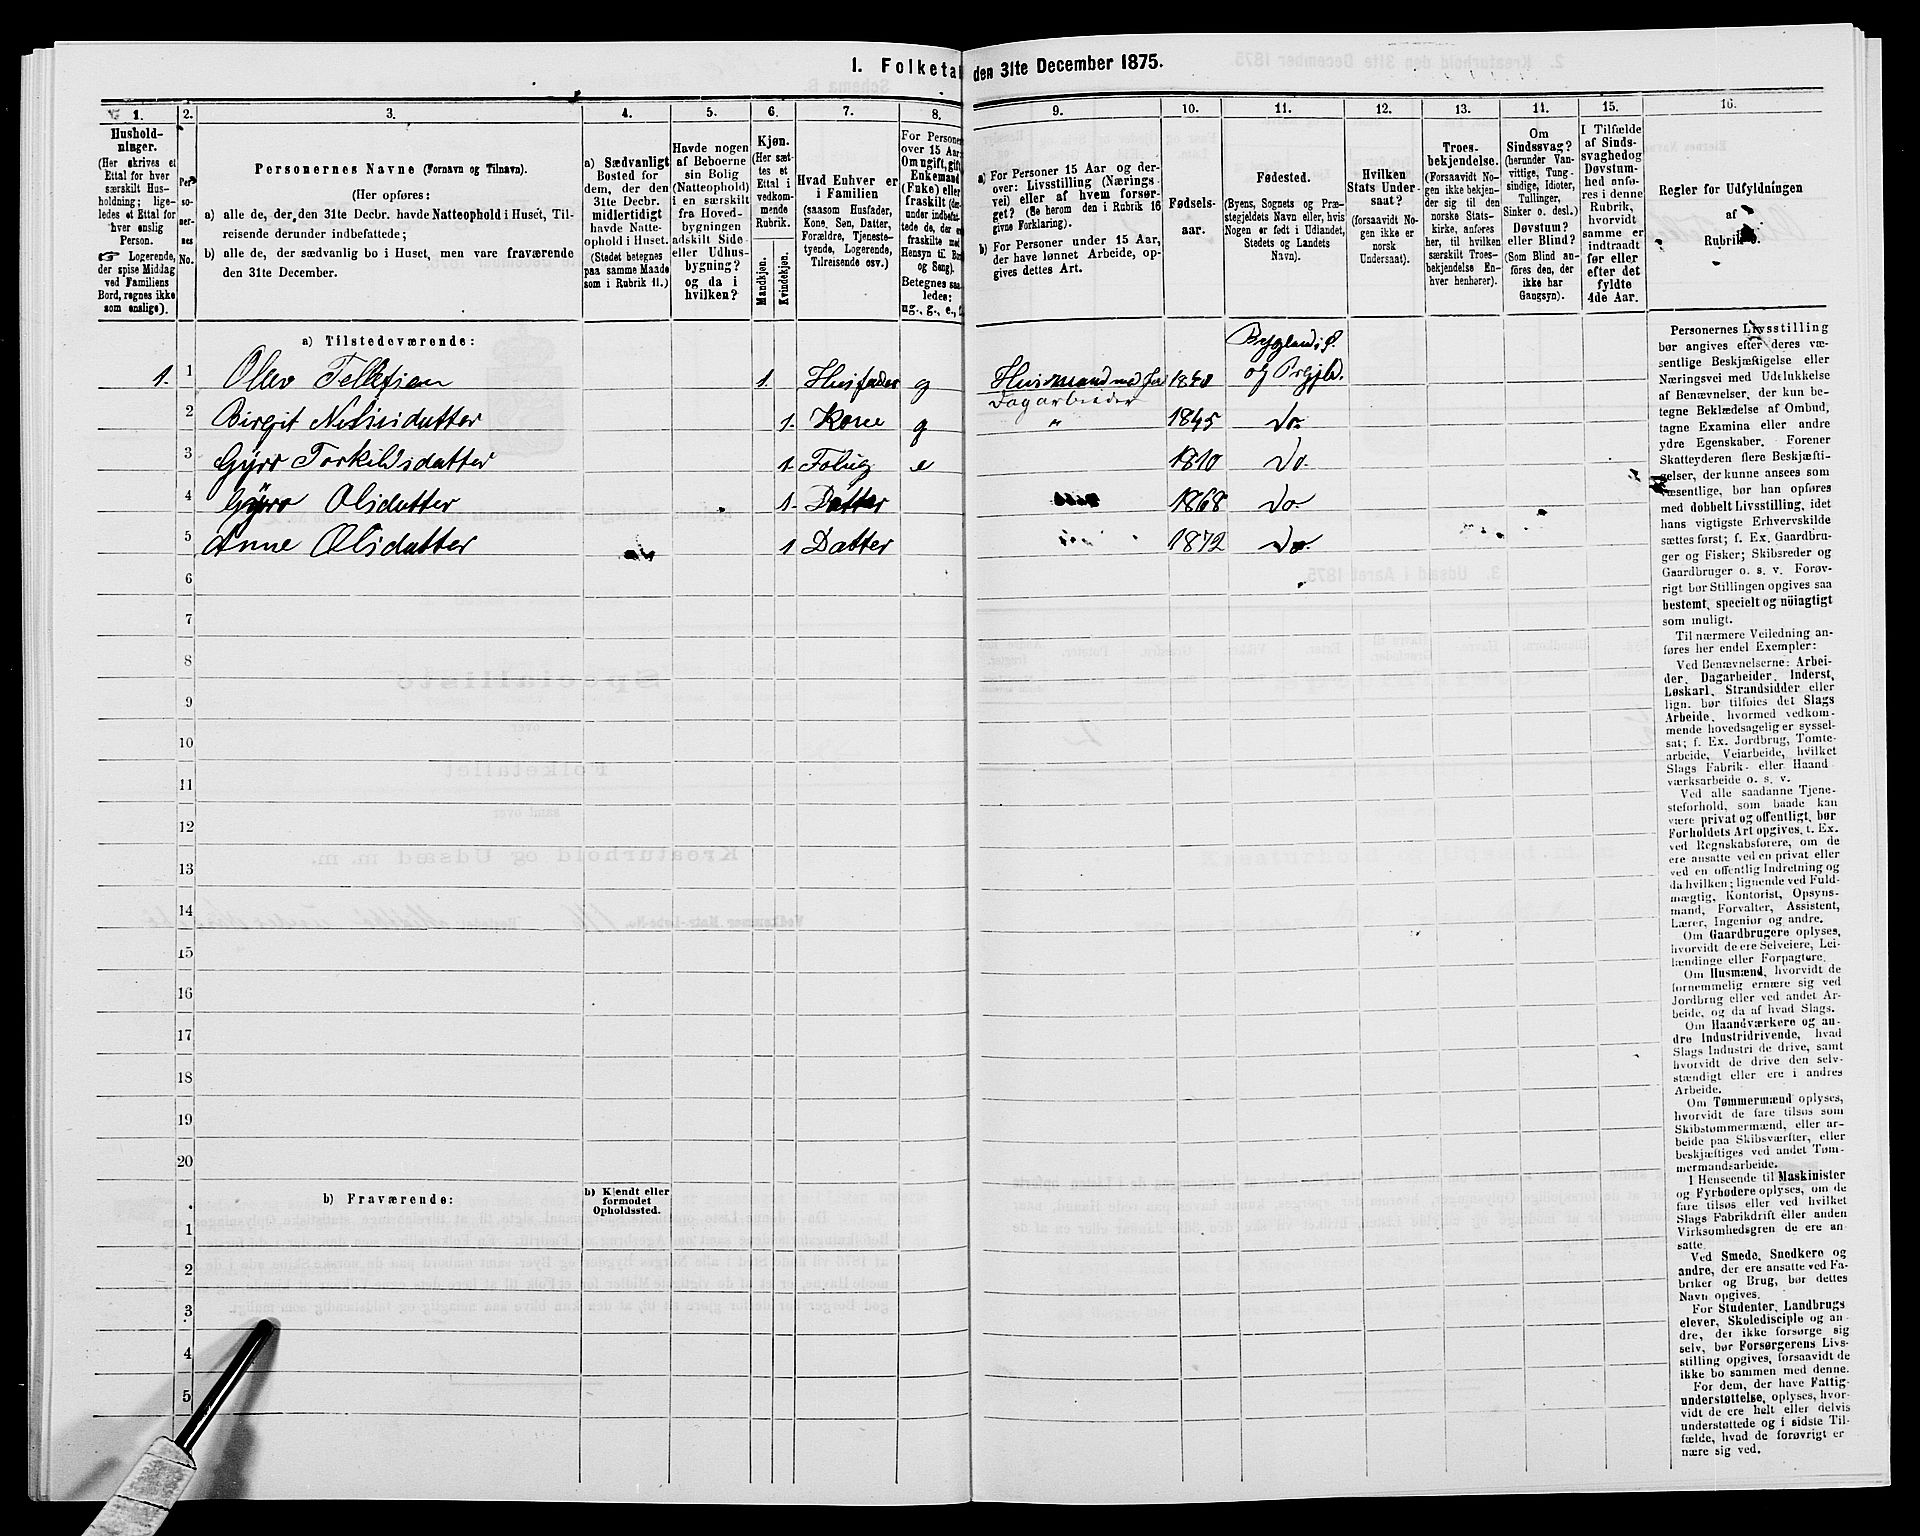 1. Folketa den 31te December 1875.
1. 2. 3. 4. 5. 6. 7. 8. 9. 10. 11. 12. 13. 14. 15. 16.
Hushold-
ninger.
(Her skrives et
Ettal for hver
særskilt Hus-
holdning; lige-
ledes et Ettal for
hver enslig
Person.
☞ Logerende,
der spise Middag
ved Familiens
Bord, regnes ikke
som enslige).
Per-
so-
ner-
nes
No.
Personernes Navne (Fornavn og Tilnavn).
(Her opføres:
a) alle de, der den 31te Decbr. havde Natteophold i Huset, Til-
reisende derunder indbefattede;
b) alle de, der sædvanlig bo i Huset, men vare fraværende
den 31te December.
a) Sædvanligt
Bosted for
dem, der den
31te Decbr.
midlertidigt
havde Natte-
ophold i Huset.
(Stedet betegnes
paa samme Maade
som i Rubrik 11.)
Havde nogen
af Beboerne
sin Bolig
(Natteophold)
i en særskilt
fra Hoved-
bygningen
adskilt Side-
eller Udhus-
bygning?
og da i
hvilken?
Kjøn.
(Her sæt-
tes et
Ettal i
vedkom-
mende
Rubrik.
Mandkjøn.
Kvindekjøn.
Hvad Enhver er
i Familien
(saasom Husfader,
Kone, Søn, Datter,
Forældre, Tjeneste-
tyende, Logerende,
Tilreisende osv.)
For Personer
over 15 Aar:
Om ugift, gift,
Enkemand
(Enke) eller
fraskilt
Betegnes saa-
ledes:
ug., g., e., f.
a) For Personer 15 Aar og der-
over: Livsstilling (Nærings-
vei) eller af hvem forsør-
get? (Se herom den i Rubrik 16
givne Forklaring).
b) For Personer under 15 Aar,
der have lønnet Arbeide, op-
gives dettes Art.
Fødsels-
aar.
Fødested.
(Byens, Sognets og Præ-
stegjeldets Navn eller, hvis
Nogen er født i Udlandet,
Stedets og Landets
Navn).
Hvilken
Stats Under-
saat?
(forsaavidt No-
gen ikke er
norsk
Undersaat).
Troes-
bekjendelse.
(Forsaavidt No-
gen ikke bekjen-
der sig til den
norske Stats-
kirke, anføres
her, til hvilken
særskilt Troes-
bekjendelse En-
hver henhører).
Om
Sindssvag?
(herunder Van-
vittige, Tung-
sindige, Idioter,
Tullinger,
Sinker o. desl.)
Døvstum?
eller Blind?
(Som Blind an-
føres den, der
ikke har
Gangsyn).
I Tilfælde
af Sinds-
svaghed og
Døvstum-
hed anfø-
res i denne
Rubrik,
hvorvidt
samme er
indtraadt
før eller
efter det
fyldte
4de Aar.
Regler for Udfyldningen
af
Rubrik
a) Tilstedeværende:
Bygland, S.
1. 1 Olav Tellefsen 1. Husfader g Husmand med Jord 1840 og Prgjld.
Dagarbeider
2 Birgit Nilsisdatter 1. Kone g " 1845 Do.
3 Gyro Torkildsdatter 1. e 1810 Do.
4 Gyro Olsdatter 1. Datter 1868 Do.
5 Anne Olsdatter 1 Datter 1872 Do.
6
7
8
9
10
11
12
13
14
15
16
17
18
19
20
b) Fraværende:
b) Kjendt eller
formodet
Opholdssted.
1
2
3
4
5
Personernes Livsstilling
bør angives efter deres væ-
sentlige Beskjæftigelse eller
Næringsvei med Udelukkelse
af Benævnelser, der kun be-
tegne Beklædelse af Ombud,
tagne Examina eller andre
ydre Egenskaber. Forener
Skatteyderen flere Beskjæfti-
gelser, der kunne ansees som
væsentlige, bør han opføres
med dobbelt Livsstilling, idet
hans vigtigste Erhvervskilde
sættes først; f. Ex. Gaardbru-
ger og Fisker; Skibsreder og
Gaardbruger o. s. v. Forøv-
rigt bør Stillingen opgives saa
bestemt, specielt og nøiagtigt
som muligt.
Til nærmere Veiledning an-
føres her endel Exempler:
Ved Benævnelserne: Arbei-
der, Dagarbeider, Inderst,
Løskarl, Strandsidder eller
lign. bør tilføies det Slags
Arbeide, hvormed vedkom-
mende hovedsagelig er syssel-
sat; f. Ex. Jordbrug, Tomte-
arbeide, Veiarbeide, hvilket
Slags Fabrik- eller Haand-
værksarbeide o. s. v.
Ved alle saadanne Tjene-
steforhold, som baade kan
være privat og offentligt, bør
Forholdets Art opgives, t. Ex.
ved Regnskabsførere, om de
ere ansatte ved en privat eller
ved en offentlig Indretning og
da hvilken; lignende ved Fuld-
mægtig, Kontorist, Opsyns-
mand, Forvalter, Assistent,
Lærer, Ingeniør og andre.
Om Gaardbrugere oplyses,
hvorvidt de ere Selveiere, Lei-
lændinge eller Forpagtere.
Om Husmænd, hvorvidt de
fornemmelig ernære sig ved
Jordbrug eller ved andet Ar-
beide, og da af hvad Slags.
Om Haandværkere og an-
dre Industridrivende, hvad
Slags Industri de drive, samt
hvorvidt de drive den selv-
stændigt eller ere i andres
Arbeide.
Om Tømmermænd oplyses,
hvorvidt de fare tilsøs som
Skibstømmermænd, eller ar-
beide paa Skibsværfter, eller
beskjæftiges ved andet Tøm-
mermandsarbeide.
I Henseende til Maskinister
og Fyrbødere oplyses, om de
fare tilsøs eller ved hvilket
Slags Fabrikdrift eller anden
Virksomhedsgren de ere an-
satte.
Ved Smede, Snedkere og
andre, der ere ansatte ved Fa-
briker og Brug, bør dettes
Navn opgives.
For Studenter, Landbrugs-
elever, Skoledisciple og an-
dre, der ikke forsørge sig
selv, bør Forsørgerens Livs-
stilling opgives, forsaavidt de
ikke bo sammen med denne.
For dem, der have Fattig-
understøttelse, oplyses, hvor-
vidt de ere helt eller delvis
understøttede og i sidste Til-
fælde, hvad de forøvrigt er-
nære sig ved.